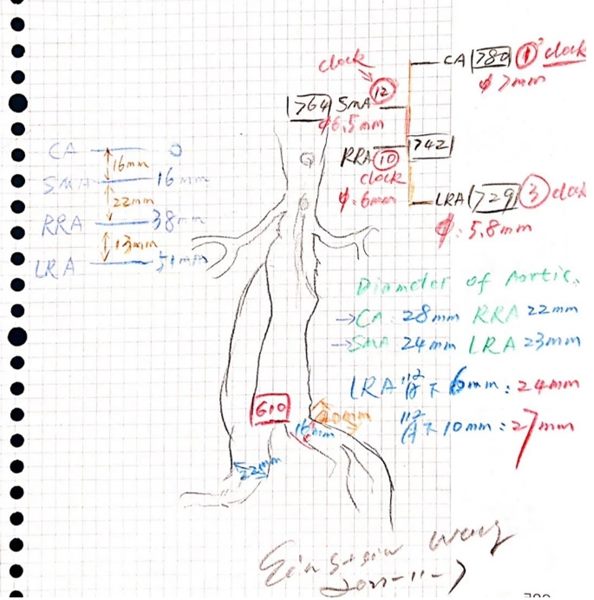 clock
CA 780 1 clock
φ 7mm
764 SMA 12
φ6.5mm
RRA 10 742
clock
φ: 6mm
LRA 729 3 clock
φ: 5.8mm
CA 0
16mm
SMA 16mm
22mm
RRA 38mm
13mm
LRA 51mm
Diameter of Aortic.
→CA 28mm RRA 22mm
→SMA 24mm LRA 23mm
LRA 下 6mm: 24mm
下 10mm: 27mm
610
16mm
22mm